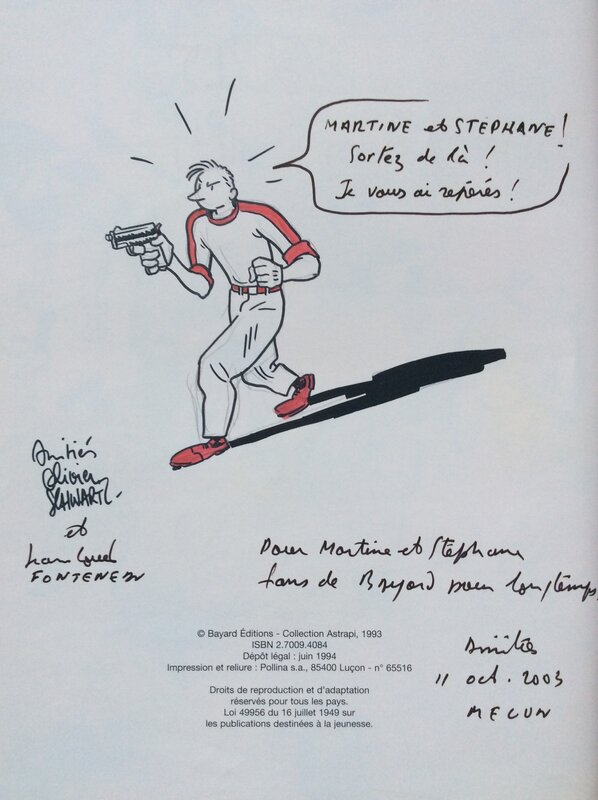 MARTINE et STEPHANE !
Sortez de là !
Je vous ai repérés !
Amitiés
Olivier
SCHWARTZ
et
Jean Louis
FONTENEAU
Pour Martine et Stephane
fans de Bayard pour longtemps
Amitiés
11 oct. 2003
MELUN
© Bayard Éditions - Collection Astrapi, 1993
ISBN 2.7009.4084
Dépôt légal : juin 1994
Impression et reliure : Pollina s.a., 85400 Luçon - n° 65516
Droits de reproduction et d'adaptation
réservés pour tous les pays.
Loi 49956 du 16 juillet 1949 sur
les publications destinées à la jeunesse.